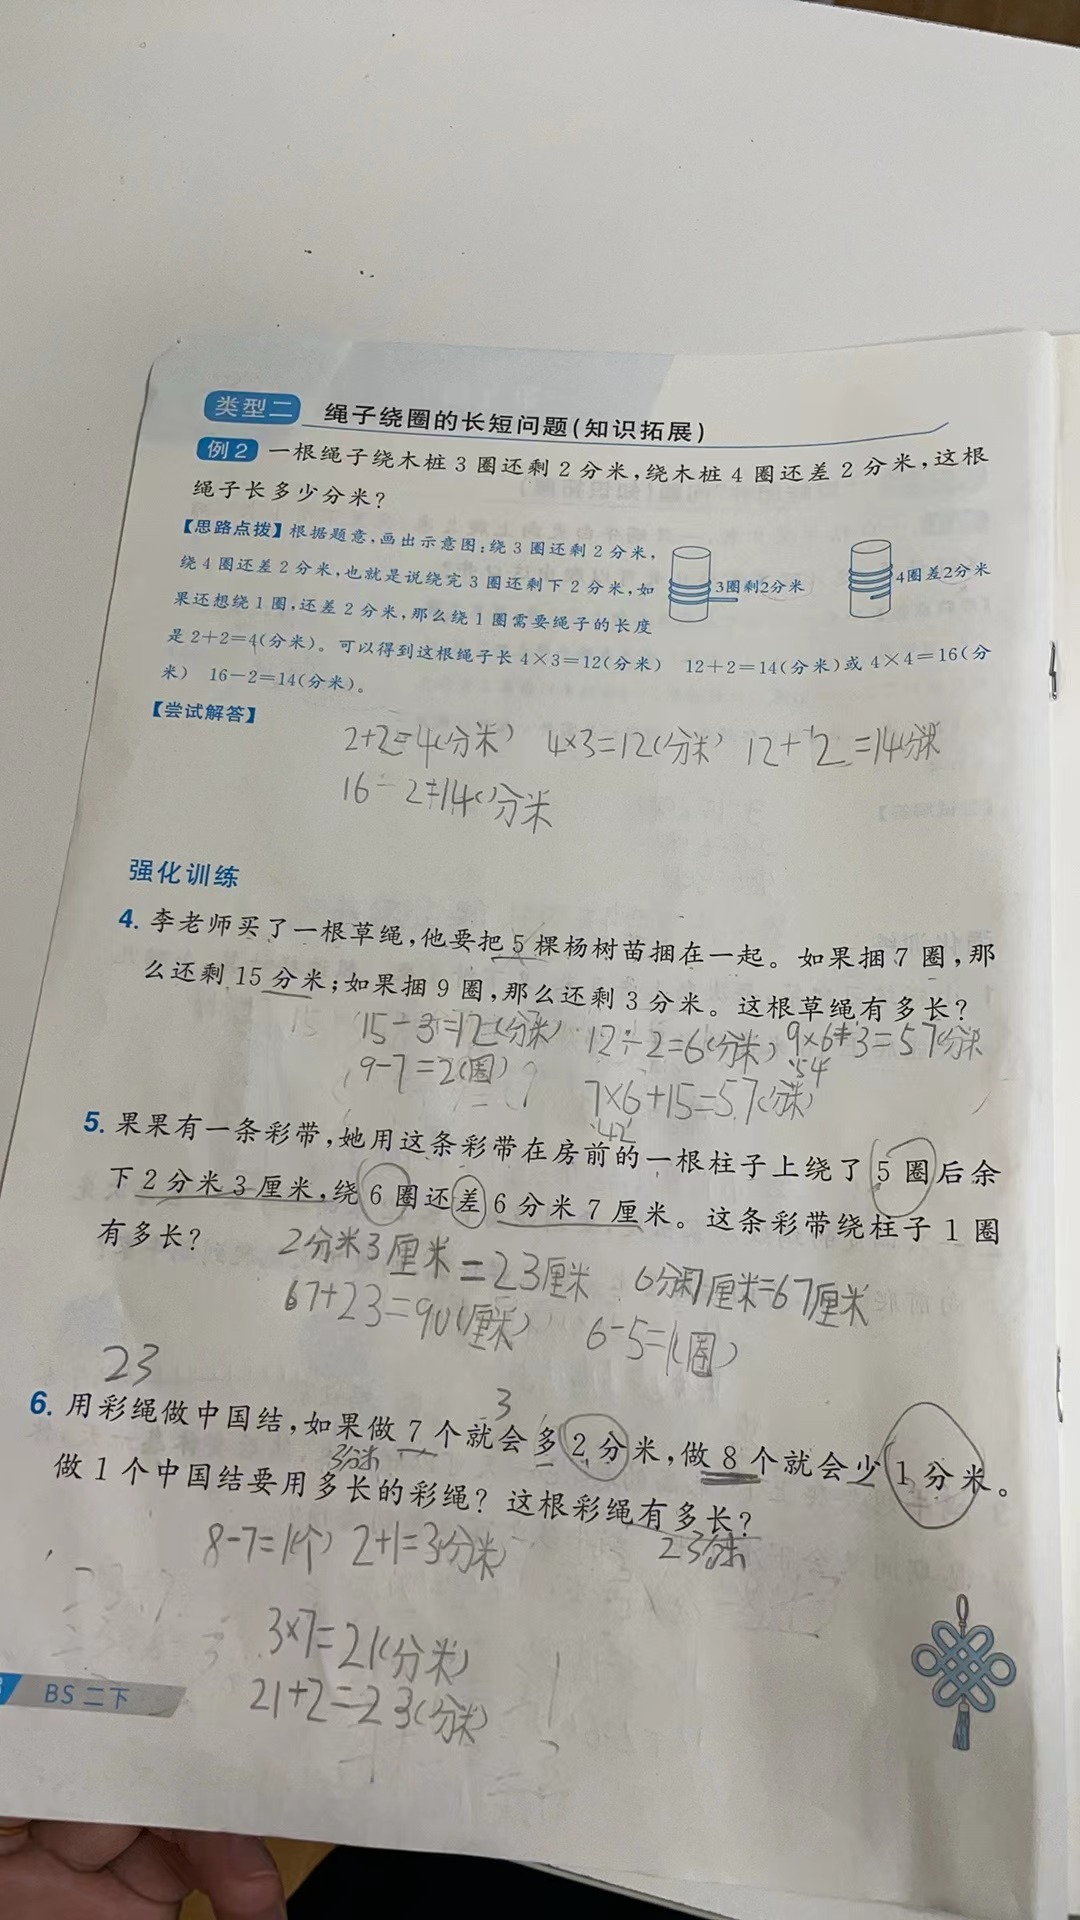 类型二 绳子绕圈的长短问题(知识拓展)
例2 一根绳子绕木桩3圈还剩2分米,绕木桩4圈还差2分米,这根
绳子长多少分米?
【思路点拨】根据题意,画出示意图:绕3圈还剩2分米,
绕4圈还差2分米,也就是说绕完3圈还剩下2分米,如
果还想绕1圈,还差2分米,那么绕1圈需要绳子的长度
3圈剩2分米
4圈差2分米
是2+2=4(分米)。可以得到这根绳子长4×3=12(分米) 12+2=14(分米)或4×4=16(分
米) 16-2=14(分米)。
【尝试解答】
2+2=4(分米) 4×3=12(分米) 12+2=14(分米
16-2=14()分米
强化训练
4. 李老师买了一根草绳,他要把5棵杨树苗捆在一起。如果捆7圈,那
么还剩15分米;如果捆9圈,那么还剩3分米。这根草绳有多长?
15-3=12(分米) 12÷2=6(分米) 9×6+3=57(分米
54
9-7=2(圈)
7×6+15=57(分米)
42
5. 果果有一条彩带,她用这条彩带在房前的一根柱子上绕了5圈后余
下2分米3厘米,绕6圈还差6分米7厘米。这条彩带绕柱子1圈
有多长?
2分米3厘米=23厘米 6分米7厘米=67厘米
67+23=90(厘米) 6-5=1(圈)
23
3
6. 用彩绳做中国结,如果做7个就会多2分米,做8个就会少1分米。
3分米
做1个中国结要用多长的彩绳?这根彩绳有多长?
23分米
8-7=1(个) 2+1=3(分米)
3×7=21(分米)
21+2=23(分米)
BS二下